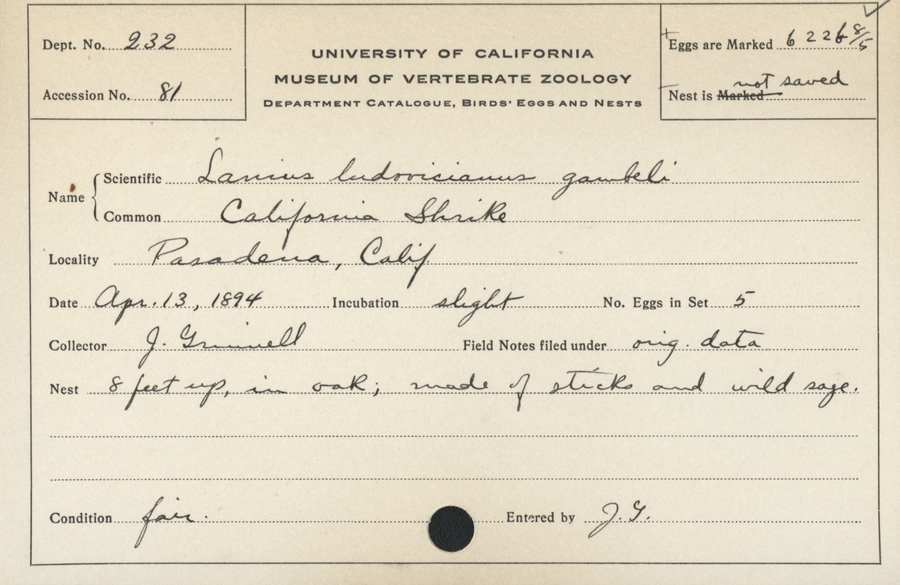 Dept. No. 232
Accession No. 81
UNIVERSITY OF CALIFORNIA
MUSEUM OF VERTEBRATE ZOOLOGY
DEPARTMENT CATALOGUE, BIRDS' EGGS AND NESTS
Eggs are Marked 6226 8/5
not saved
Nest is Marked
Name
Scientific Lanius ludovicianus gambeli
Common California Shrike
Locality Pasadena, Calif
Date Apr. 13, 1894 Incubation slight No. Eggs in Set 5
Collector J. Grinnell Field Notes filed under orig. data
Nest 8 feet up, in oak; made of sticks and wild sage.
Condition fair. Entered by J. G.